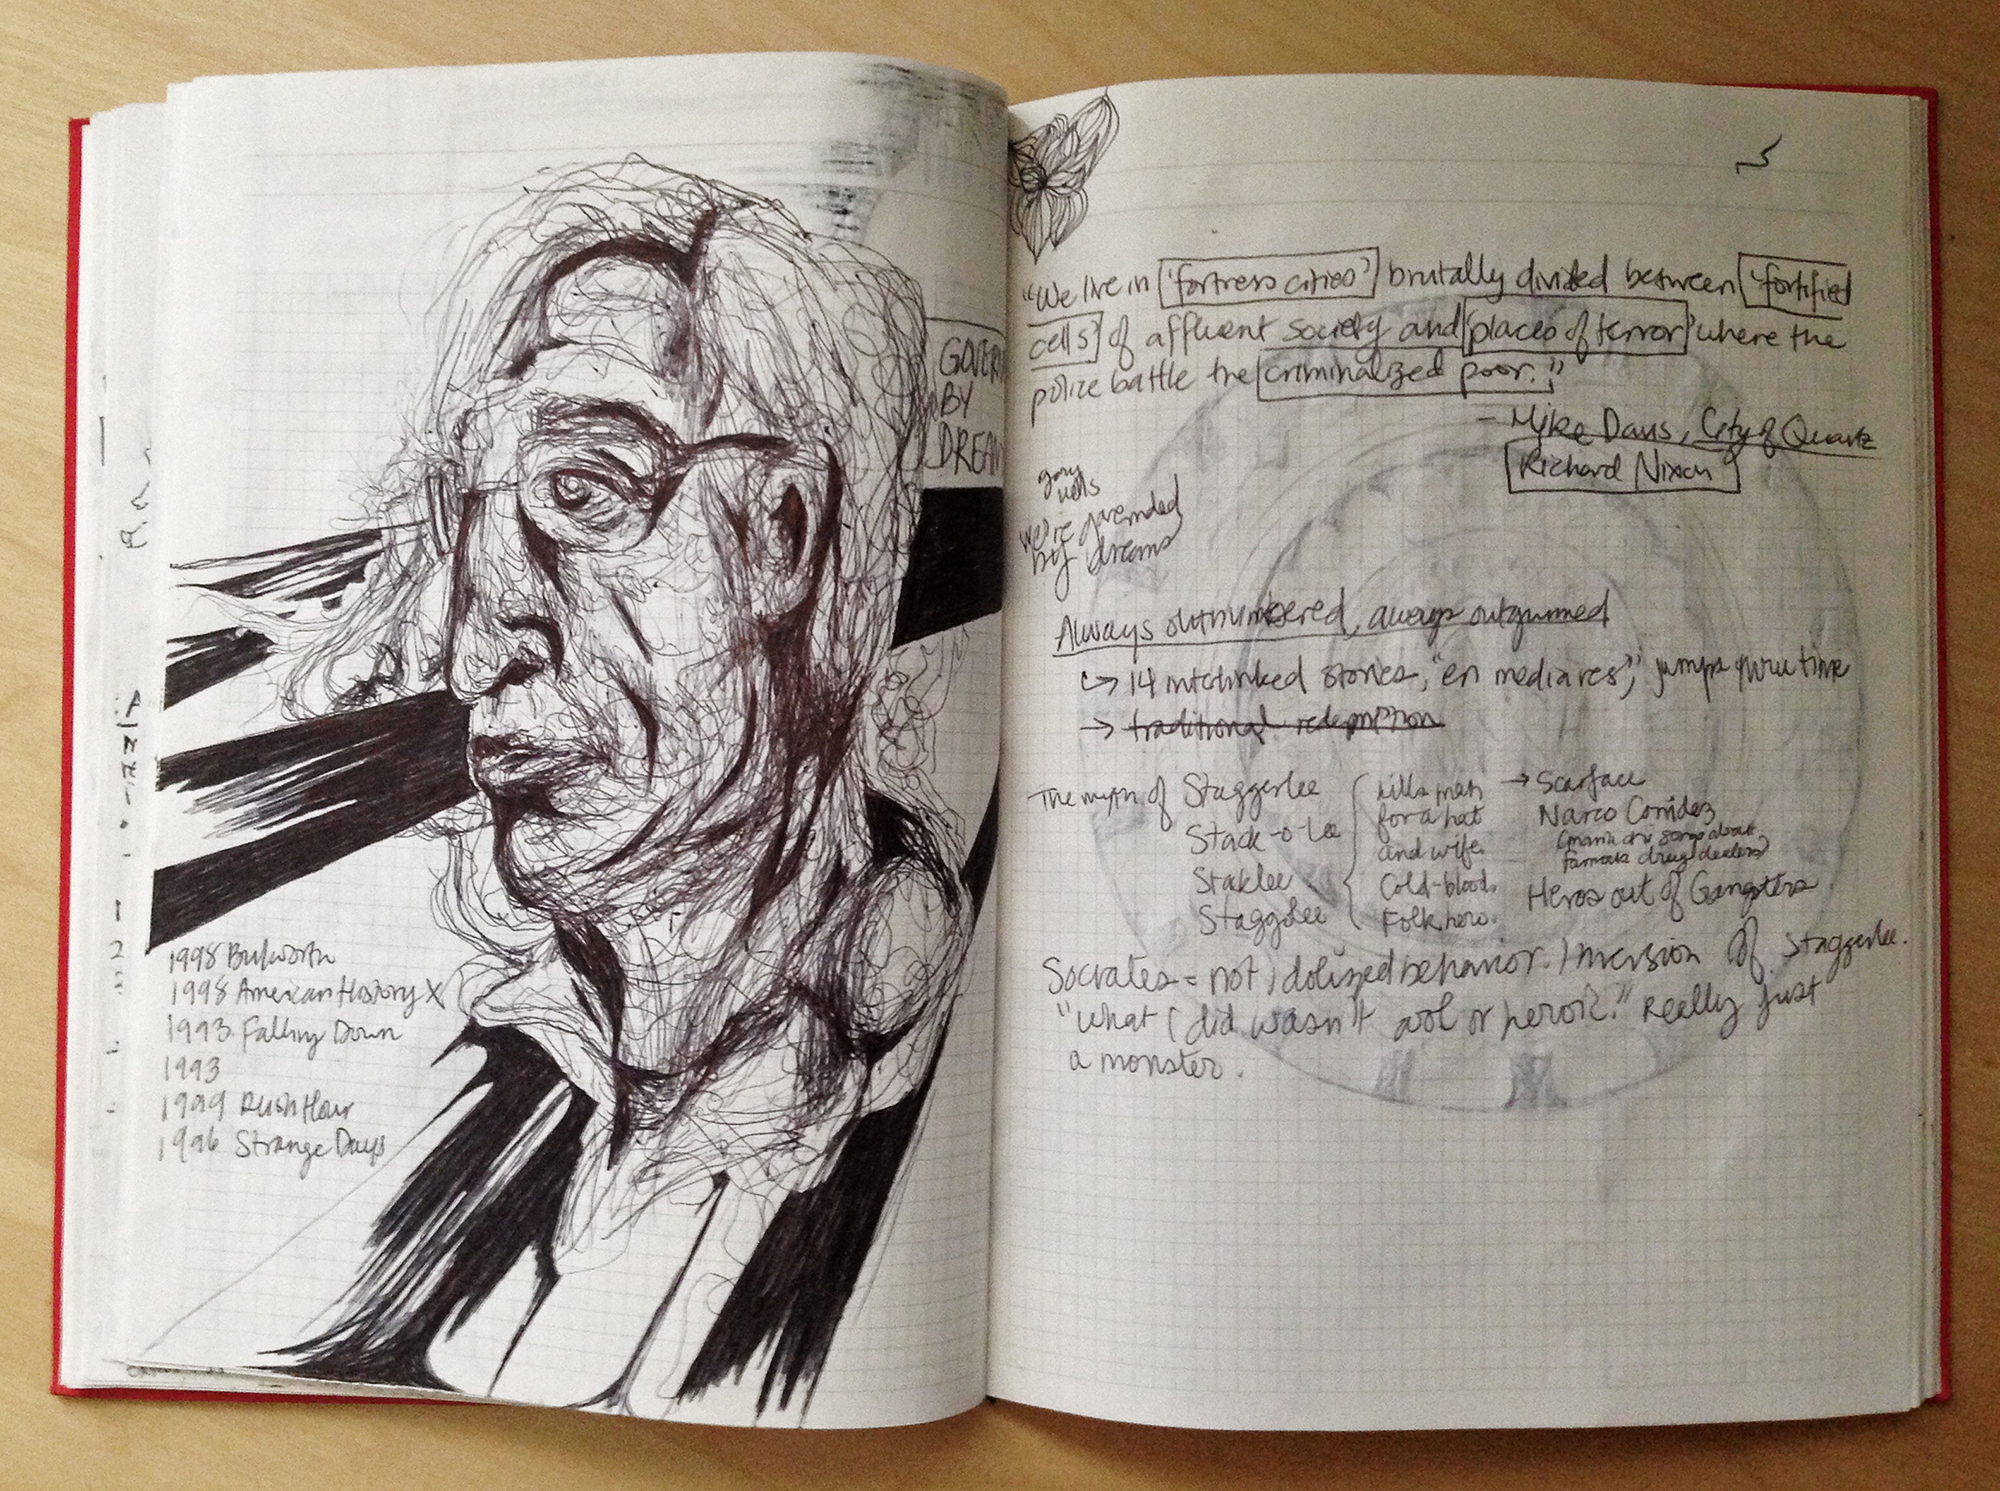 GOVERN
BY
DREAM
1998 Bulworth
1998 American History X
1993 Falling Down
1993
1999 Rush Hour
1996 Strange Days
"We live in 'fortress cities' brutally divided between 'fortified
cells' of affluent society and 'places of terror' where the
police battle the criminalized poor."
- Mike Davis, City of Quartz
Richard Nixon
gary
wills
we're governded
by dreams
Always outnumbered, always outgunned
↳ 14 interlinked stories, "en media res," jumps thru time
→ traditional redemption
The myth of Staggerlee
Stack-o-Lee
Staklee
Staggolee
kills man
for a hat
and wife.
Cold-blood.
Folk hero.
→ Scarface
Narco Corridoz
(mariachi songs about
famous drug dealers)
Heros out of Gangsters
Socrates = not idolized behavior. Inversion of Staggerlee.
"What I did wasn't cool or heroic." Really just
a monster.